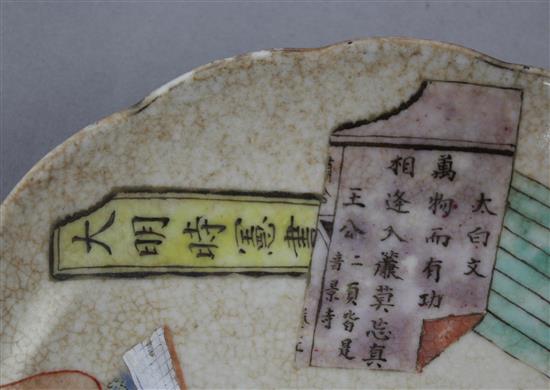 大明時憲書
太白文
萬物而有功
相逢入簾莫忘真
王公二頁皆是
音景寺